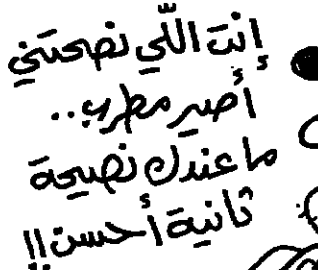 إنت اللّي نصحتني
أصير مطرب..
ما عندك نصيحة
ثانية أحسن!!